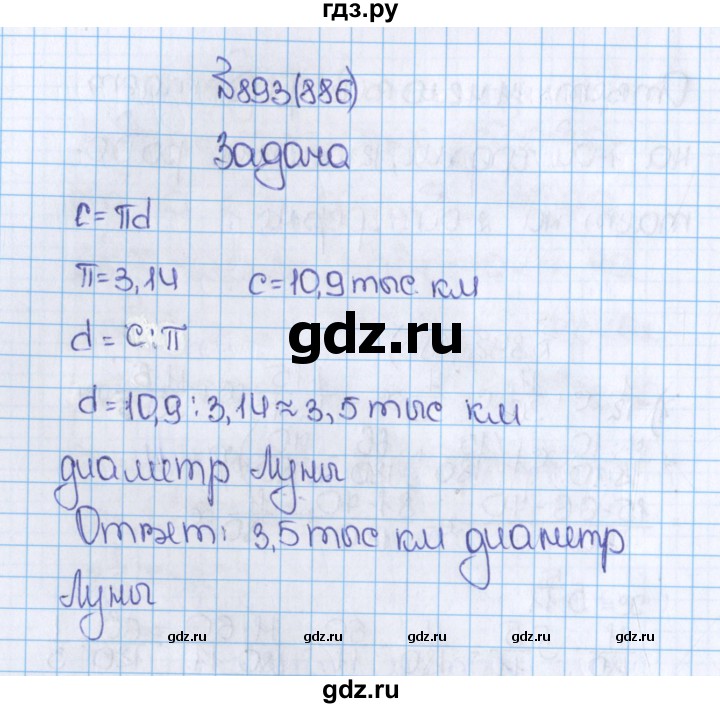 гдз.ру
№893(886)
Задача
c=πd
π=3,14 c=10,9 тыс. км
gdz.ru
d=c:π
d=10,9:3,14≈3,5 тыс км
диаметр Луны
Ответ: 3,5 тыс км диаметр
Луны
gdz.ru gdz.ru gdz.ru gdz.ru gdz.ru
gdz.ru